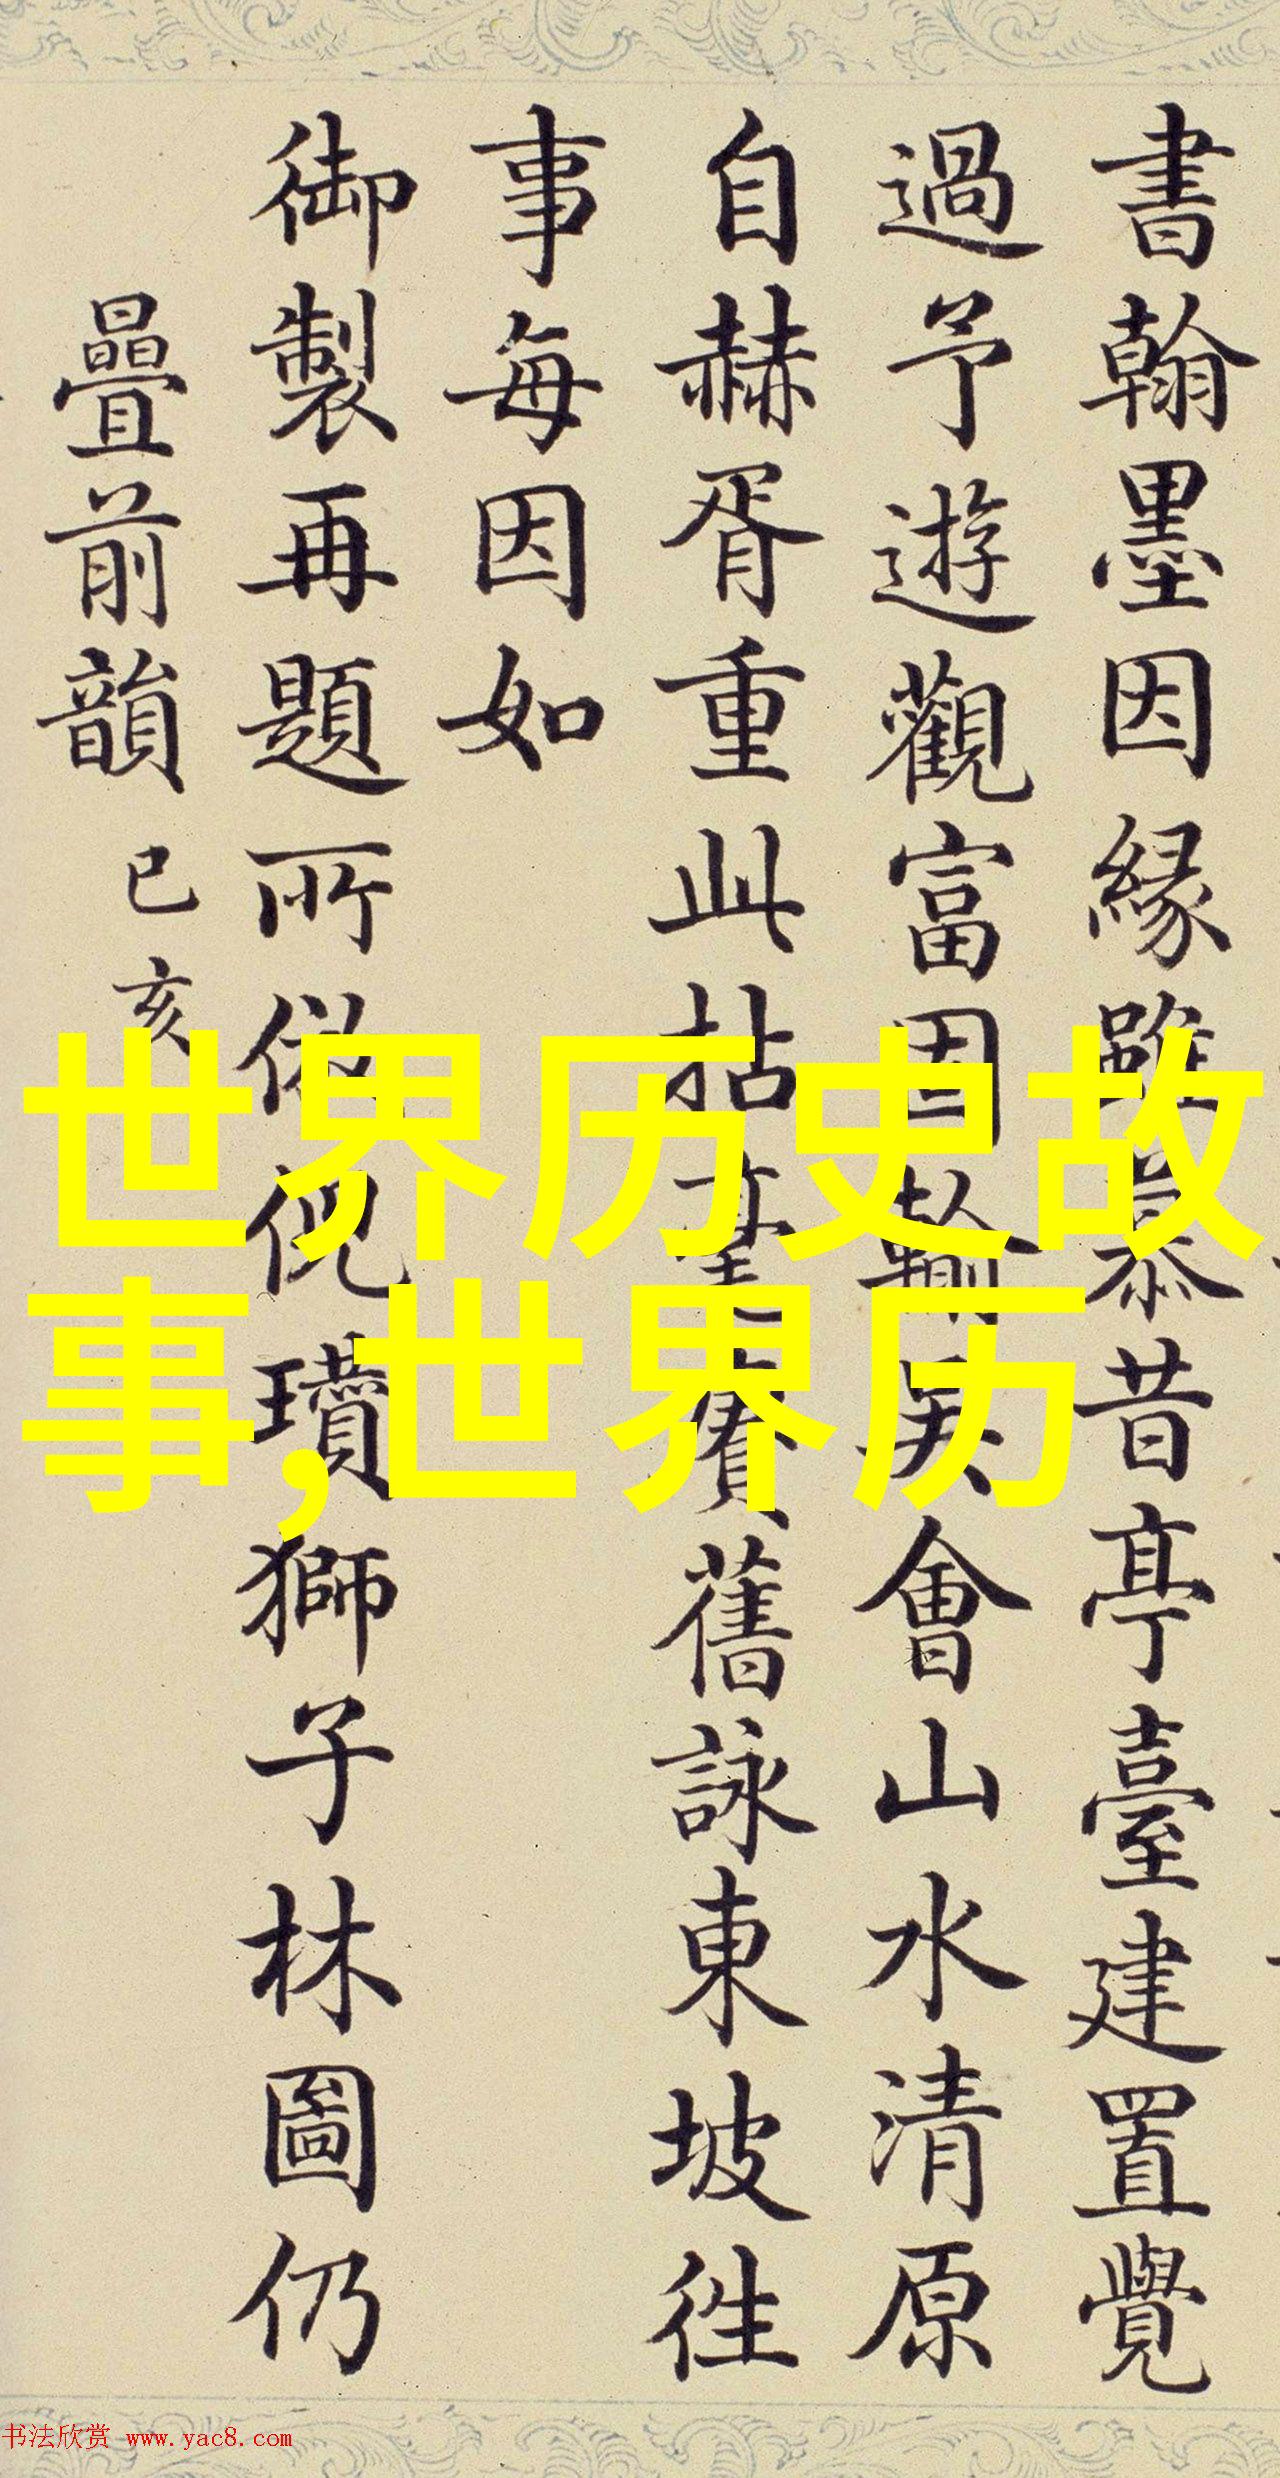 書翰墨因緣雖慕昔亭臺建置覺
過予遊觀富因輸矣會山水清原
自赫胥重此拈毫賡舊詠東坡往
事每因如
御製再題所倣倪瓚獅子林圖仍
疊前韻 己亥
世界历史故
事,世界历
书法欣赏 www.yac8.com